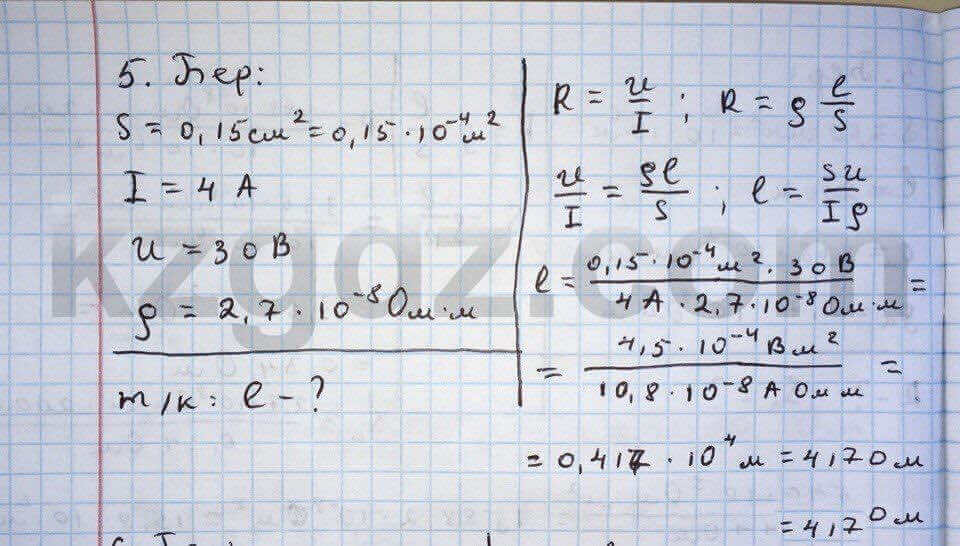 5. Бер:
S = 0,15 см² = 0,15 · 10⁻⁴ м²
I = 4 A
U = 30 В
ρ = 2,7 · 10⁻⁸ Ом·м
т/к: ℓ - ?
R = U/I ; R = ρ ℓ/S
U/I = ρℓ/S ; ℓ = SU/Iρ
ℓ = 0,15 · 10⁻⁴ м² · 30 В / 4 А · 2,7 · 10⁻⁸ Ом·м =
= 4,5 · 10⁻⁴ В м² / 10,8 · 10⁻⁸ А Ом м =
= 0,417 · 10⁴ м = 4170 м
= 4,170 м
kzgdz.com